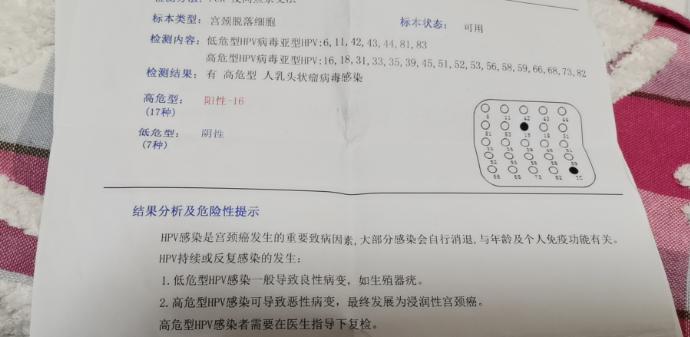 标本类型：宫颈脱落细胞 标本状态： 可用
检测内容：低危型HPV病毒亚型HPV:6,11,42,43,44,81,83
高危型HPV病毒亚型HPV:16,18,31,33,35,39,45,51,52,53,56,58,59,66,68,73,82
检测结果：有 高危型 人乳头状瘤病毒感染
高危型： 阳性-16
(17种)
低危型： 阴性
(7种)
结果分析及危险性提示
HPV感染是宫颈癌发生的重要致病因素,大部分感染会自行消退,与年龄及个人免疫功能有关。
HPV持续或反复感染的发生：
1.低危型HPV感染一般导致良性病变，如生殖器疣。
2.高危型HPV感染可导致恶性病变，最终发展为浸润性宫颈癌。
高危型HPV感染者需要在医生指导下复检。